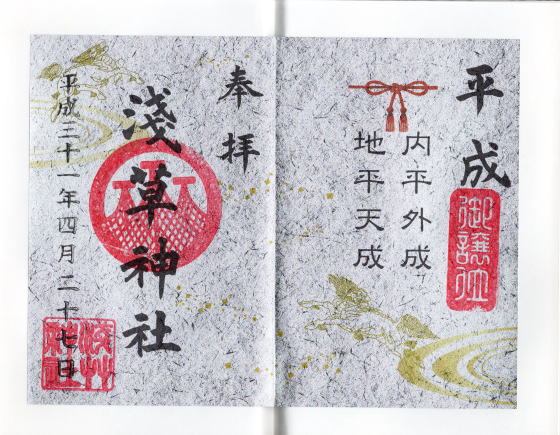 平成
御譲位
内平外成
地平天成
奉拝
淺草神社
平成三十一年四月二十七日
淺草神社